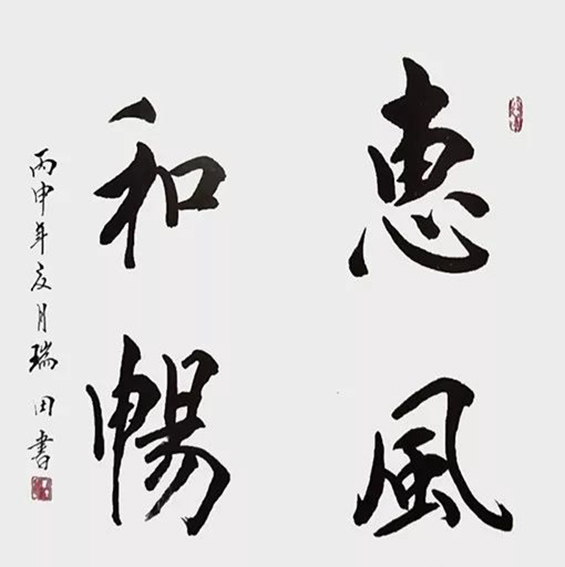 惠風
和暢
丙申年夏月瑞田書